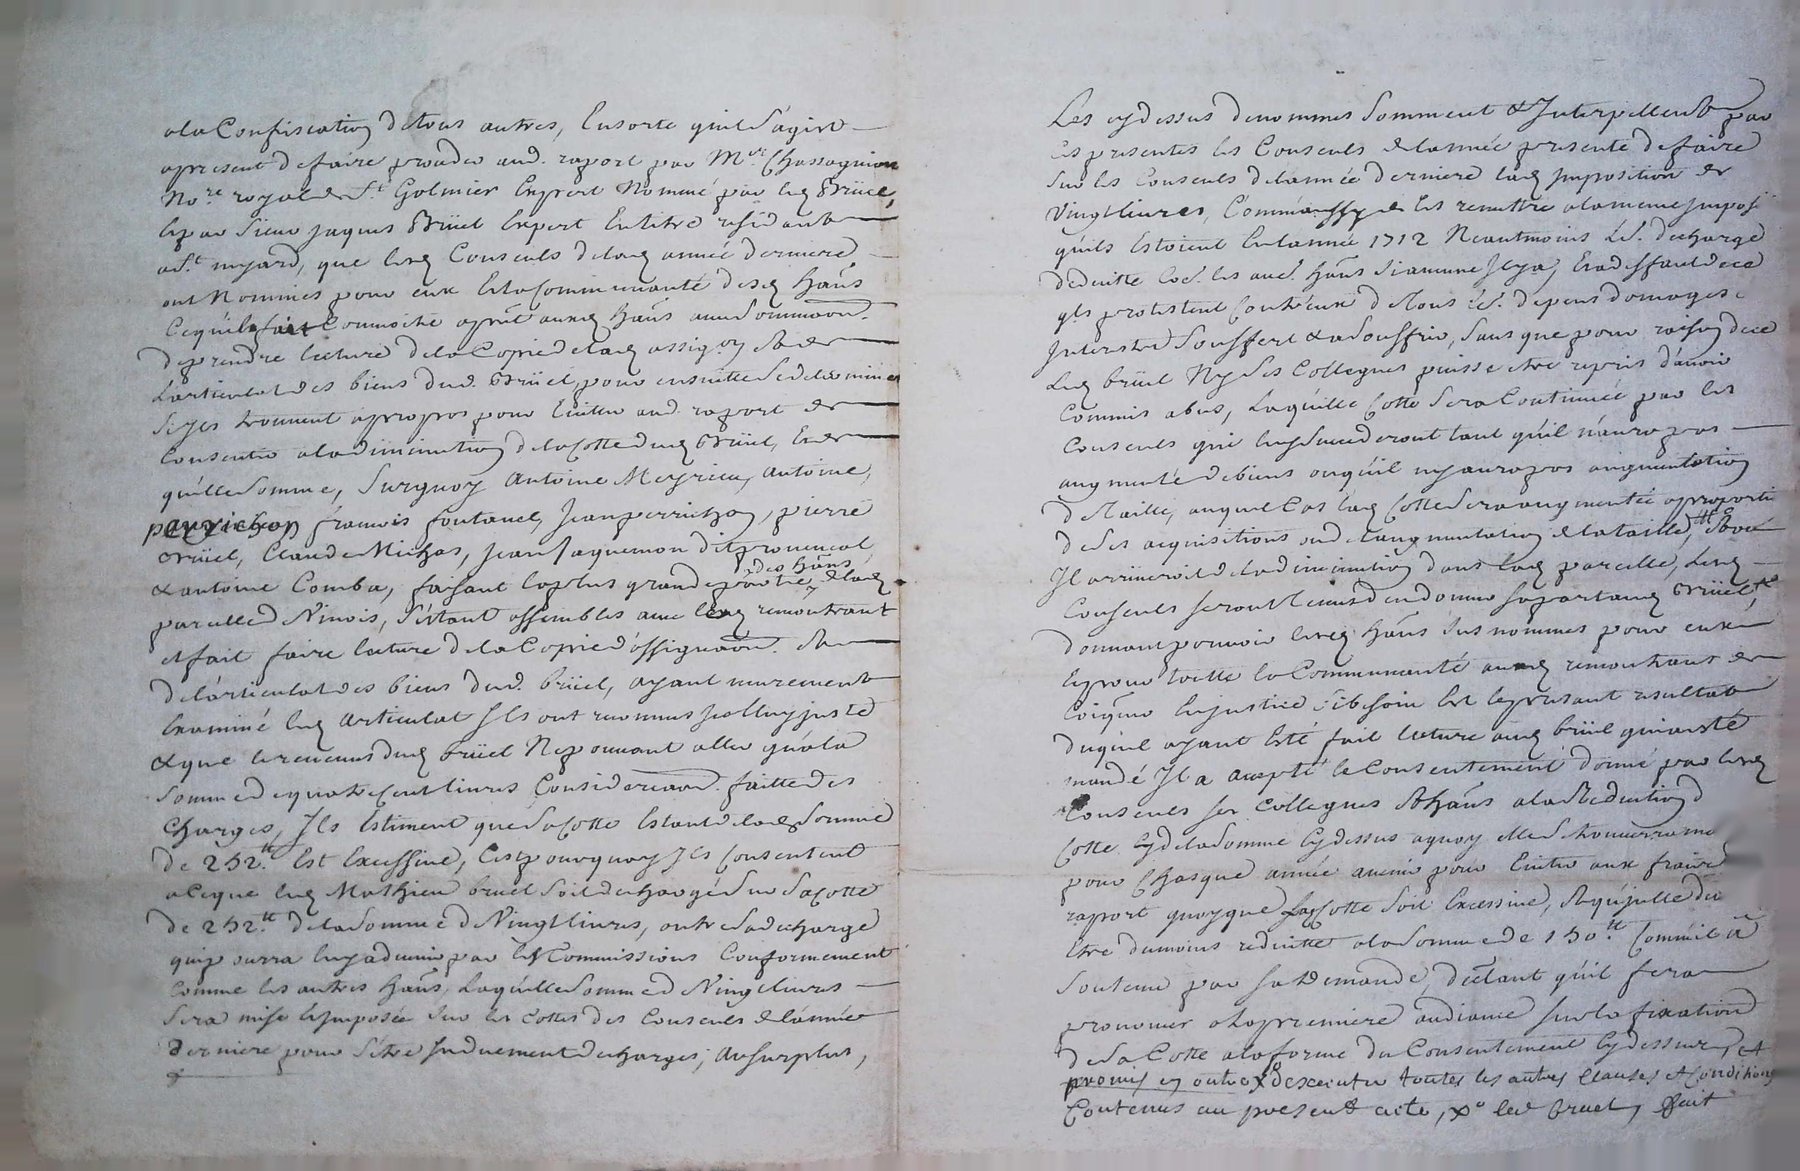 a la Confiscation de tous autres, Ensorte quil s'agirt
apresent de faire proceder aud. raport par Mre. Chassagnion
Nore. royal de St. Golmier Expert Nommé par led. Brüel,
& par Sieur jaques Brüel Expert En titre residant
a St. myard, que lesd. Consuls de lad. année derniere
ont Nommés pour eux & la Communauté desd. hans
Ce quils fait Connoitre apnt. auxd. hans avec sommaon.
de prendre lecture de la Copie de lad. assig.on & de
L'articulat des biens dud. Brüel, pour ensuitte se determiner
si ils trouvent apropos pour Eviter aud. raport de
Consentir a la diminution de la Cotte dud. Brüel, & de
quelle somme, Surquoy Antoine Meyrieu, Antoine,
perrichon françois fontanel, Jean perrichon, pierre
Brüel, Claude Michas, Jean Jaquemon dit provencal
& antoine Comba, faisant la plus grande partie des hans de lad.
parcelle d Vinois, S'etant assemblés avec lesd. remontrant
et fait faire lecture de la Copie d'assignaon. &
de l'articulat des biens dud. brüel, ayant meurement
Examiné led. articulat Ils ont reconnus Icelluy juste
& que les revenus dud. brüel Ne pouvant aller qu'a la
somme de quatre Cent livres Consideraon. faitte des
Charges, Ils Estiment que sa Cotte Estant de lad. somme
de 252.tt Est Excessive, C'est pourquoy Ils Consentent
a Ce que led. Mathieu bruel soit dechargé sur sa Cotte
de 252.tt de la somme de Vingt livres, outre sa decharge
qui pourra luy advenir par les Commissions Conformement
Comme les autres hans, Laquelle somme de Vingt livres
sera mise & Imposée sur les Cottes des Consuls de l'année
derniere pour s'être Induement dechargés, Au surplus,
Les cy dessus denommés somment & Interpellent par
Ces presentes les Consuls de l'année presente de faire
sur les Consuls de l'année derniere lad. Imposition de
Vingt livres, Comme aussy de les remettre a la meme Imposi
quils Estoient En l'année 1712 Neantmoins
protestent Contr'eux de Tous depens domages
Interests soufferts & a souffrir, sans que pour raison de ce
Led. brüel Ny ses Collegues puisse etre repris d'avoir
Commis abus, Laquelle Cotte sera Continuée par les
Consuls qui leur succederont tant qu'il n'aura pas
augmenté de biens ou qu'il ny aura pas augmentation
de Taille, auquel Cas lad. Cotte sera augmentée a proporti
de ses acquisitions ou de l'augmentation de la taille, & ou
Il arriveroit de la diminution dans lad. parcelle, lesd.
Consuls seront tenus d'en donner sa part aud. Brüel,
donnant pouvoir lesd. hans sus nommés pour eux
& pour toutte la Communauté auxd. remontrant de
En justice si besoin Est le present resultat
duquel ayant Eté fait lecture aud. brüel qui a Eté
mandé Il a accepté le Consentement donné par lesd.
Consuls ses Collegues & hans a la Reduction d
Cotte de la somme Cy dessus a quoy elle se trouvera
pour Chasque année avenir pour Eviter aux fraix
raport quoyque sa Cotte soit Excessive, & qu'elle du
Etre du moins reduitte a la somme de 150.tt Comme il a
soutenu par sa Demande, declarant qu'il fera
prononcer a la premiere audiance sur la fixation
de sa Cotte a la forme du Consentement Cy dessus, et
promis en outre d'executer toutes les autres Clauses et Conditions
Contenus au present acte, Xo led. bruel, ffait